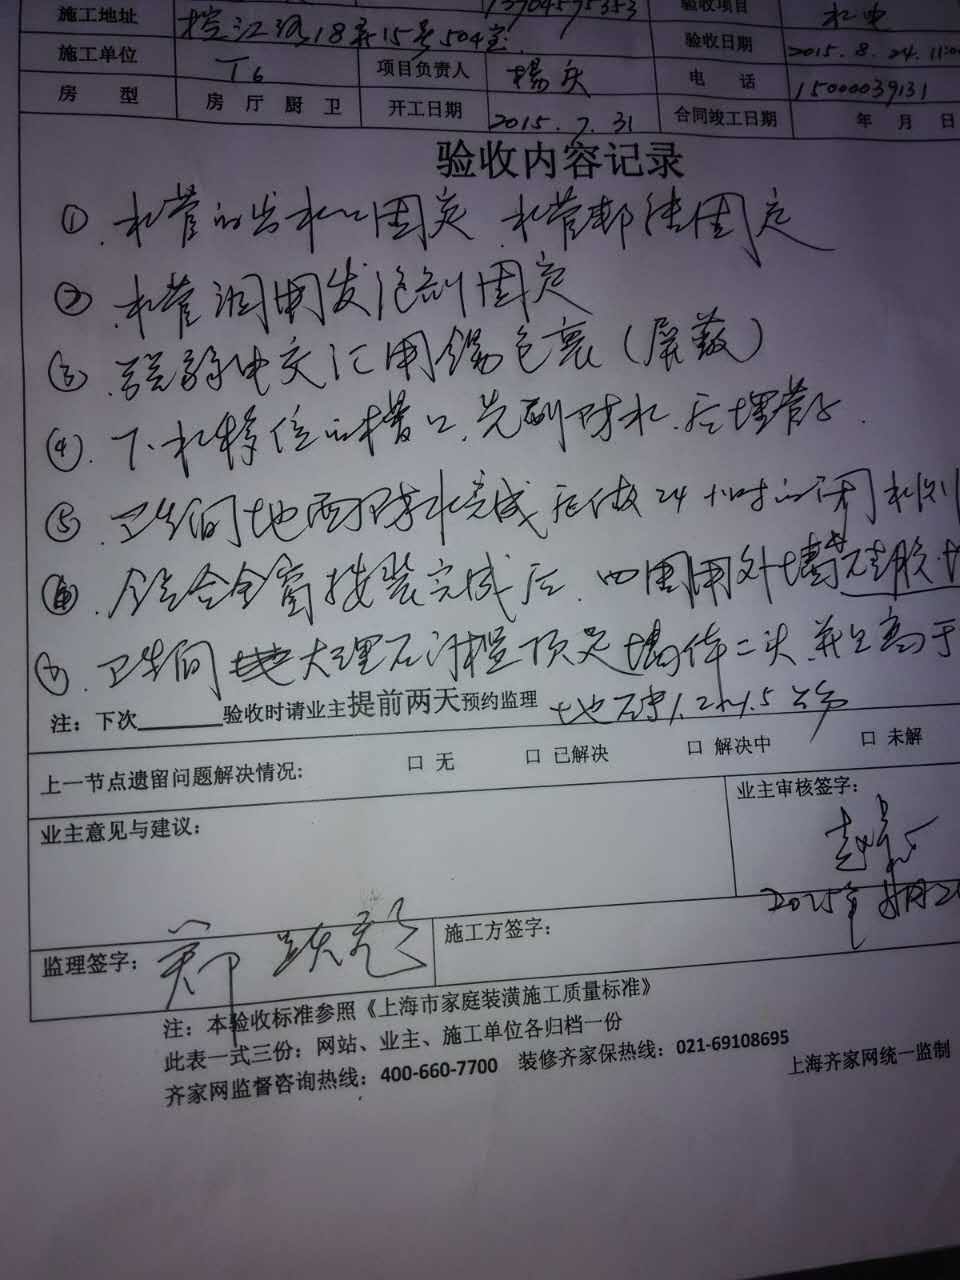 施工地址 控江路18弄15号504室 13904595353 验收项目 水电
施工单位 T6 项目负责人 杨庆 验收日期 2015.8.24.11:0
房 型 房 厅 厨 卫 开工日期 2015.7.31 电 话 15000039131
合同竣工日期 年 月 日
验收内容记录
①.水管的出水口固定.水管都使固定
②.水管调用发泡剂固定
③.强弱电交汇用锡包裹(屏蔽)
④.下水移位的槽口.先刷防水.后埋管子.
⑤.卫生间地面防水完成后做24小时的闭水
⑥.铝合金窗按装完成后.四周用外墙硅胶
⑦.卫生间大理石门槛顶足墙体二头.并且高于
地砖1.2~1.5公分
注:下次______验收时请业主提前两天预约监理
上一节点遗留问题解决情况: □ 无 □ 已解决 □ 解决中 □ 未解
业主意见与建议:
业主审核签字:
2015年8月2
监理签字: 郑
施工方签字:
注:本验收标准参照《上海市家庭装潢施工质量标准》
此表一式三份:网站、业主、施工单位各归档一份
齐家网监督咨询热线:400-660-7700 装修齐家保热线:021-69108695
上海齐家网统一监制